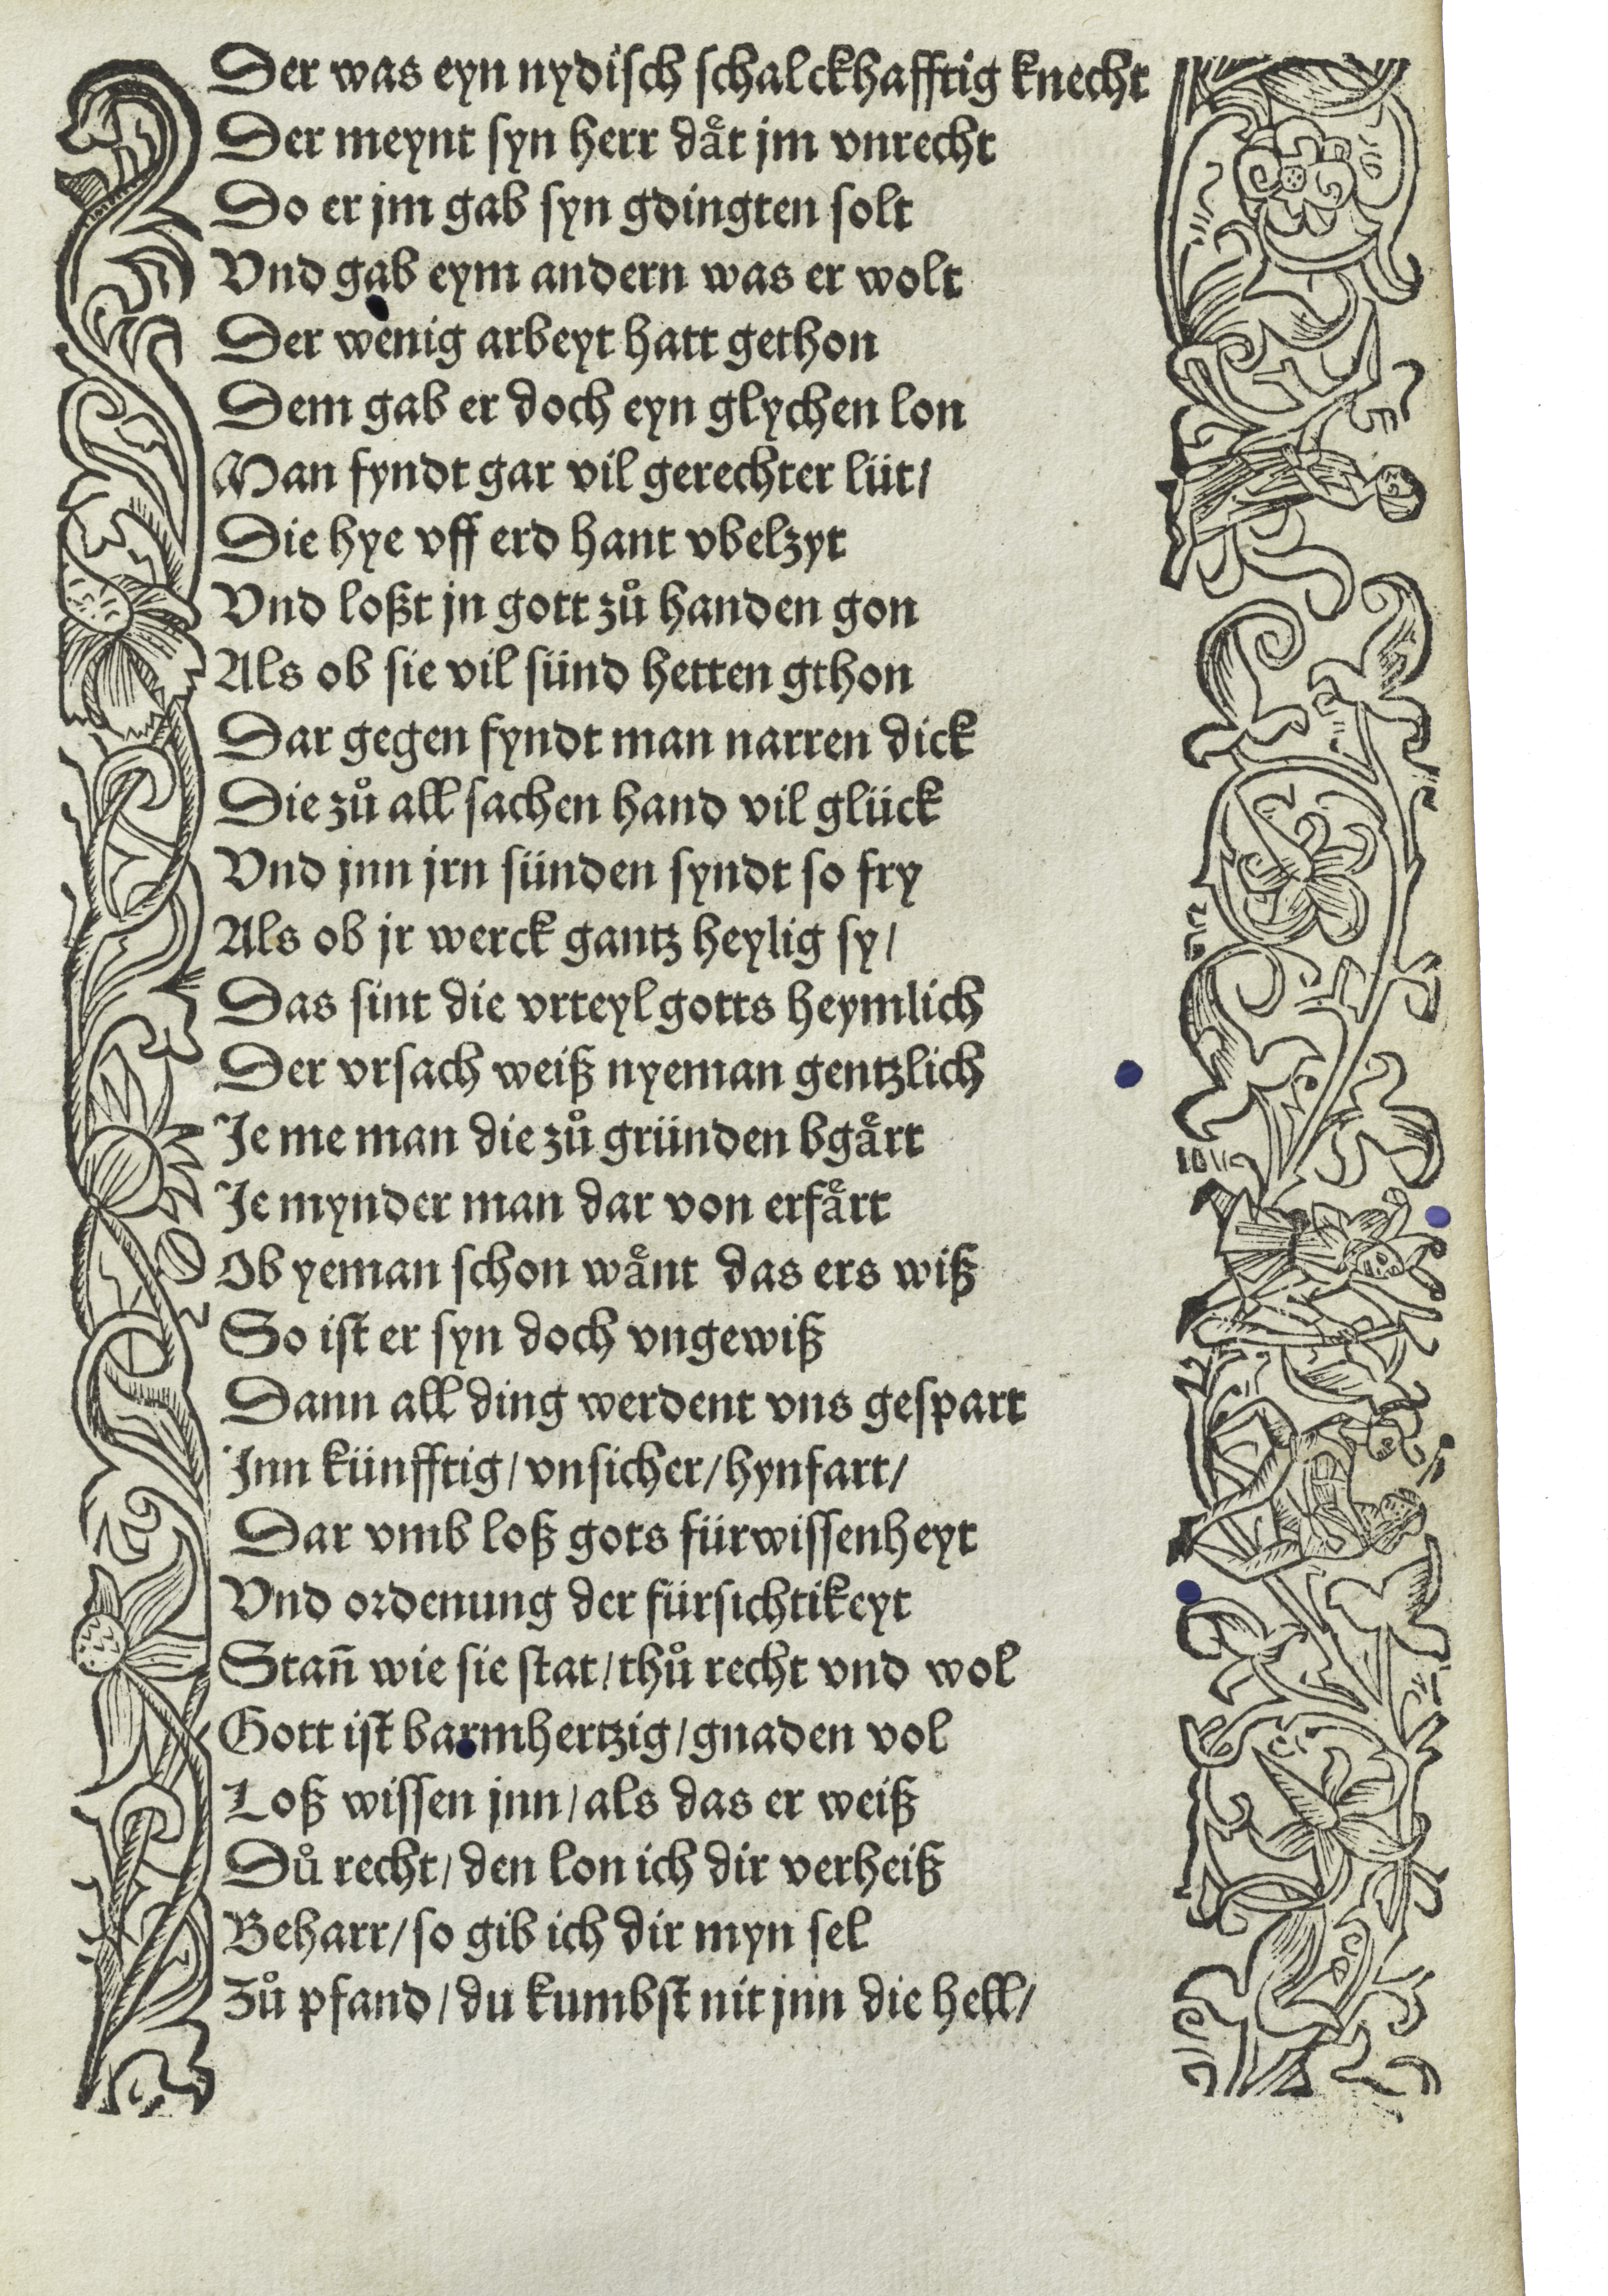 Der was eyn nydiſch ſchalckhafftig knecht
Der meynt ſyn herr daͤt jm vnrecht
Do er jm gab ſyn gdingten ſolt
Vnd gab eym andern was er wolt
Der wenig arbeyt hatt gethon
Dem gab er doch eyn glychen lon
Man fyndt gar vil gerechter lüt/
Die hye vff erd hant vbelzyt
Vnd loßt jn gott zuͦ handen gon
Als ob sie vil sünd hetten gthon
Dar gegen fyndt man narren dick
Die zuͦ all ſachen hand vil glück
Vnd jnn jrn sünden ſyndt ſo fry
Als ob jr werck gantz heylig ſy/
Das sint die vrteyl gotts heymlich
Der vrſach weiß nyeman gentzlich
Je me man die zuͦ gründen bgaͤrt
Je mynder man dar von erfaͤrt
Ob yeman ſchon waͤnt das ers wiß
So iſt er ſyn doch vngewiß
Dann all ding werdent vns geſpart
Jnn künfftig/vnsicher/hynfart/
Dar vmb loß gots fürwiſſenheyt
Vnd ordenung der fürsichtikeyt
Stan̄ wie sie ſtat/thuͦ recht vnd wol
Gott iſt barmhertzig/gnaden vol
Loß wiſſen jnn/als das er weiß
Duͦ recht/den lon ich dir verheiß
Beharr/ſo gib ich dir myn ſel
Zuͦ pfand/du kumbſt nit jnn die hell/